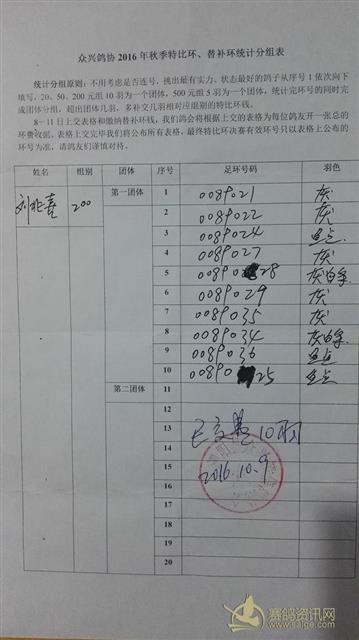 众兴鸽协 2016 年秋季特比环、替补环统计分组表
统计分组原则：不用考虑是否连号，挑出最有实力、状态最好的鸽子从序号 1 依次向下
填写，20、50、200 元组 10 羽为一个团体，500 元组 5 羽为一个团体，统计完环号的同时完
成团体分组，超出团体几羽，多补交几羽相对应组别的特比环钱。
8－11 日上交表格和缴纳替补环钱，我们鸽会将根据上交的表格为每位鸽友开一张总的
环费收据，表格上交完毕我们将公布所有表格，最终特比环决赛有效环号只以表格上公布的
环号为准，请鸽友们谨慎对待。
姓名 组别 团体 序号 足环号码 羽色
刘兆喜 200 第一团体 1 0089021 灰
2 0089022 灰
3 0089024 雨点
4 0089027 灰
5 0089028 灰白条
6 0089029 灰
7 0089035 灰
8 0089034 灰白条
9 0089036 雨点
10 0089025 雨点
第二团体 11
12
13 已交 10羽
14
15 2016.10.9
16
17
18
19
20
赛鸽资讯网
www.saige.com